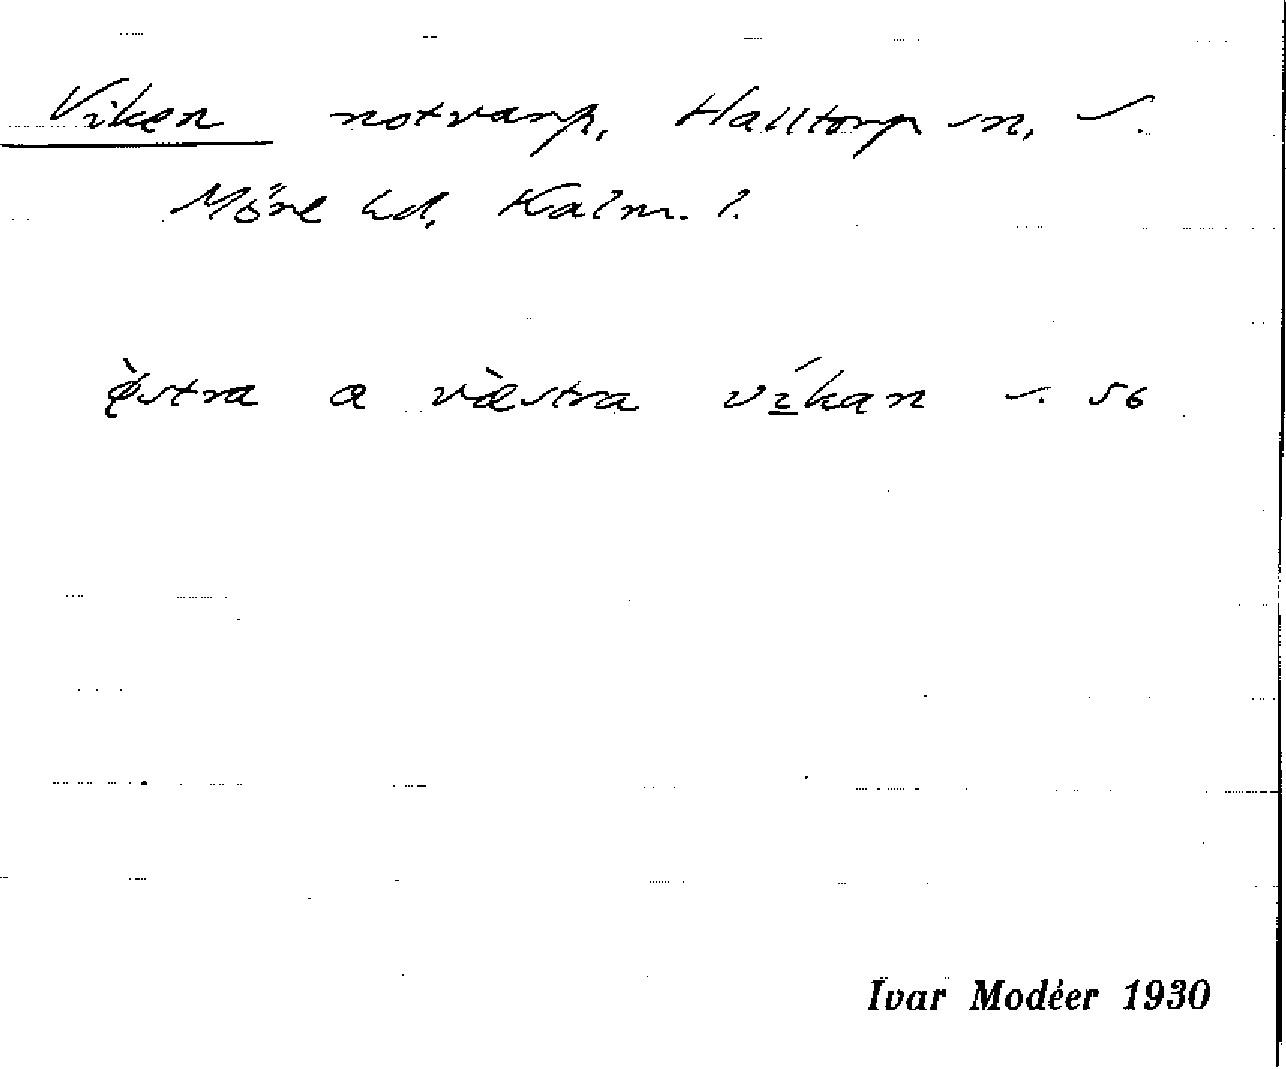 Viken notvarp, Halltorp sn, S.
Möre hd. Kalm. l.
ø̀stra a væ̀stra víkan s. 56
Ivar Modéer 1930